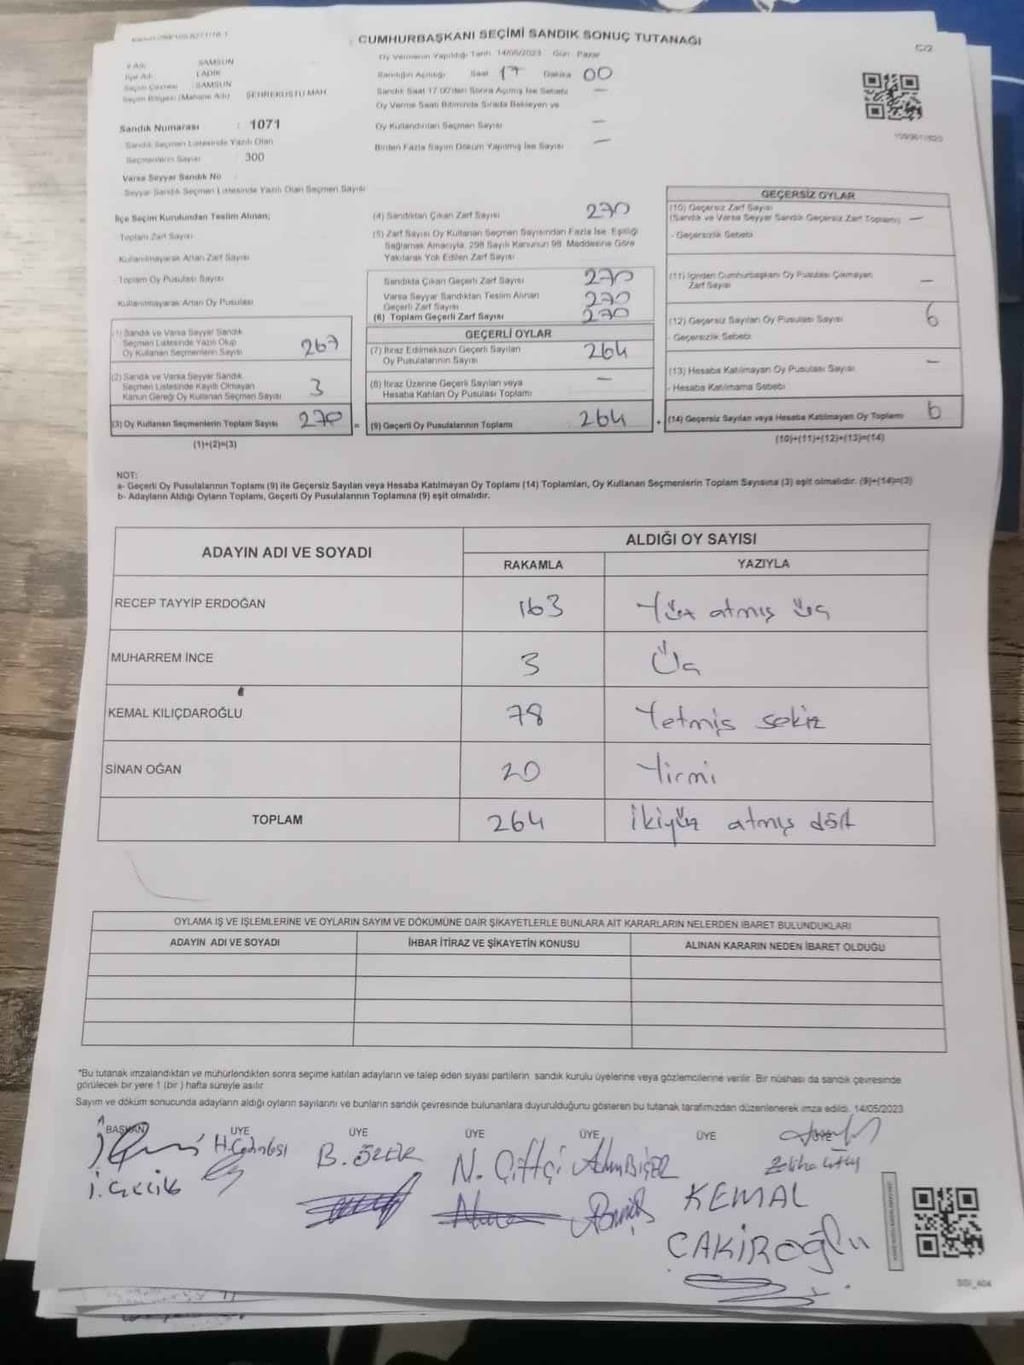 CUMHURBAŞKANI SEÇİMİ SANDIK SONUÇ TUTANAĞI
C/2
Oy Vermenin Yapıldığı Tarih 14/05/2023 Gün Pazar
SAMSUN
İlçe Adı LADİK
SAMSUN
Seçim Bölgesi (Mahalle Adı) ŞEHREKÜSTÜ MAH
Sandığın Açıldığı Saat 17 Dakika 00
Sandık Saat 17.00'den Sonra Açılmış İse Sebebi —
Oy Verme Saati Bitiminde Sırada Bekleyen ve
Oy Kullandırılan Seçmen Sayısı —
Birden Fazla Sayım Döküm Yapılmış İse Sayısı —
Sandık Numarası : 1071
Sandık Seçmen Listesinde Yazılı Olan
Seçmenlerin Sayısı 300
Varsa Seyyar Sandık No
Seyyar Sandık Seçmen Listesinde Yazılı Olan Seçmen Sayısı
İlçe Seçim Kurulundan Teslim Alınan;
Toplam Zarf Sayısı
Kullanılmayarak Artan Zarf Sayısı
Toplam Oy Pusulası Sayısı
Kullanılmayarak Artan Oy Pusulası
(1) Sandık ve Varsa Seyyar Sandık
Seçmen Listesinde Yazılı Olup
Oy Kullanan Seçmenlerin Sayısı 267
(2) Sandık ve Varsa Seyyar Sandık
Seçmen Listesinde Kayıtlı Olmayan
Kanun Gereği Oy Kullanan Seçmen Sayısı 3
(3) Oy Kullanan Seçmenlerin Toplam Sayısı 270
(1)+(2)=(3)
(4) Sandıktan Çıkan Zarf Sayısı 270
(5) Zarf Sayısı Oy Kullanan Seçmen Sayısından Fazla İse, Eşitliği
Sağlamak Amacıyla, 298 Sayılı Kanunun 98. Maddesine Göre
Yakılarak Yok Edilen Zarf Sayısı
Sandıkta Çıkan Geçerli Zarf Sayısı 270
Varsa Seyyar Sandıktan Teslim Alınan
Geçerli Zarf Sayısı 270
(6) Toplam Geçerli Zarf Sayısı 270
GEÇERLİ OYLAR
(7) İtiraz Edilmeksizin Geçerli Sayılan
Oy Pusulalarının Sayısı 264
(8) İtiraz Üzerine Geçerli Sayılan veya
Hesaba Katılan Oy Pusulası Toplamı —
= (9) Geçerli Oy Pusulalarının Toplamı 264
GEÇERSİZ OYLAR
(10) Geçersiz Zarf Sayısı
(Sandık ve Varsa Seyyar Sandık Geçersiz Zarf Toplamı) —
- Geçersizlik Sebebi
(11) İçinden Cumhurbaşkanı Oy Pusulası Çıkmayan
Zarf Sayısı —
(12) Geçersiz Sayılan Oy Pusulası Sayısı 6
- Geçersizlik Sebebi
(13) Hesaba Katılmayan Oy Pusulası Sayısı —
- Hesaba Katılmama Sebebi
+ (14) Geçersiz Sayılan veya Hesaba Katılmayan Oy Toplamı 6
(10)+(11)+(12)+(13)=(14)
NOT:
a- Geçerli Oy Pusulalarının Toplamı (9) ile Geçersiz Sayılan veya Hesaba Katılmayan Oy Toplamı (14) Toplamları, Oy Kullanan Seçmenlerin Toplam Sayısına (3) eşit olmalıdır. (9)+(14)=(3)
b- Adayların Aldığı Oyların Toplamı, Geçerli Oy Pusulalarının Toplamına (9) eşit olmalıdır.
ADAYIN ADI VE SOYADI
ALDIĞI OY SAYISI
RAKAMLA YAZIYLA
RECEP TAYYİP ERDOĞAN 163 Yüz atmış üç
MUHARREM İNCE 3 Üç
KEMAL KILIÇDAROĞLU 78 Yetmiş sekiz
SİNAN OĞAN 20 Yirmi
TOPLAM 264 İkiyüz atmış dört
OYLAMA İŞ VE İŞLEMLERİNE VE OYLARIN SAYIM VE DÖKÜMÜNE DAİR ŞİKAYETLERLE BUNLARA AİT KARARLARIN NELERDEN İBARET BULUNDUKLARI
ADAYIN ADI VE SOYADI İHBAR İTİRAZ VE ŞİKAYETİN KONUSU ALINAN KARARIN NEDEN İBARET OLDUĞU
*Bu tutanak imzalandıktan ve mühürlendikten sonra seçime katılan adayların ve talep eden siyasi partilerin sandık kurulu üyelerine veya gözlemcilerine verilir. Bir nüshası da sandık çevresinde
görülecek bir yere 1 (bir) hafta süreyle asılır.
Sayım ve döküm sonucunda adayların aldığı oyların sayılarını ve bunların sandık çevresinde bulunanlara duyurulduğunu gösteren bu tutanak tarafımızdan düzenlenerek imza edildi. 14/05/2023
BAŞKAN ÜYE ÜYE ÜYE ÜYE ÜYE
B. ÖZER
N. Çiftçi
KEMAL
ÇAKIROĞLU